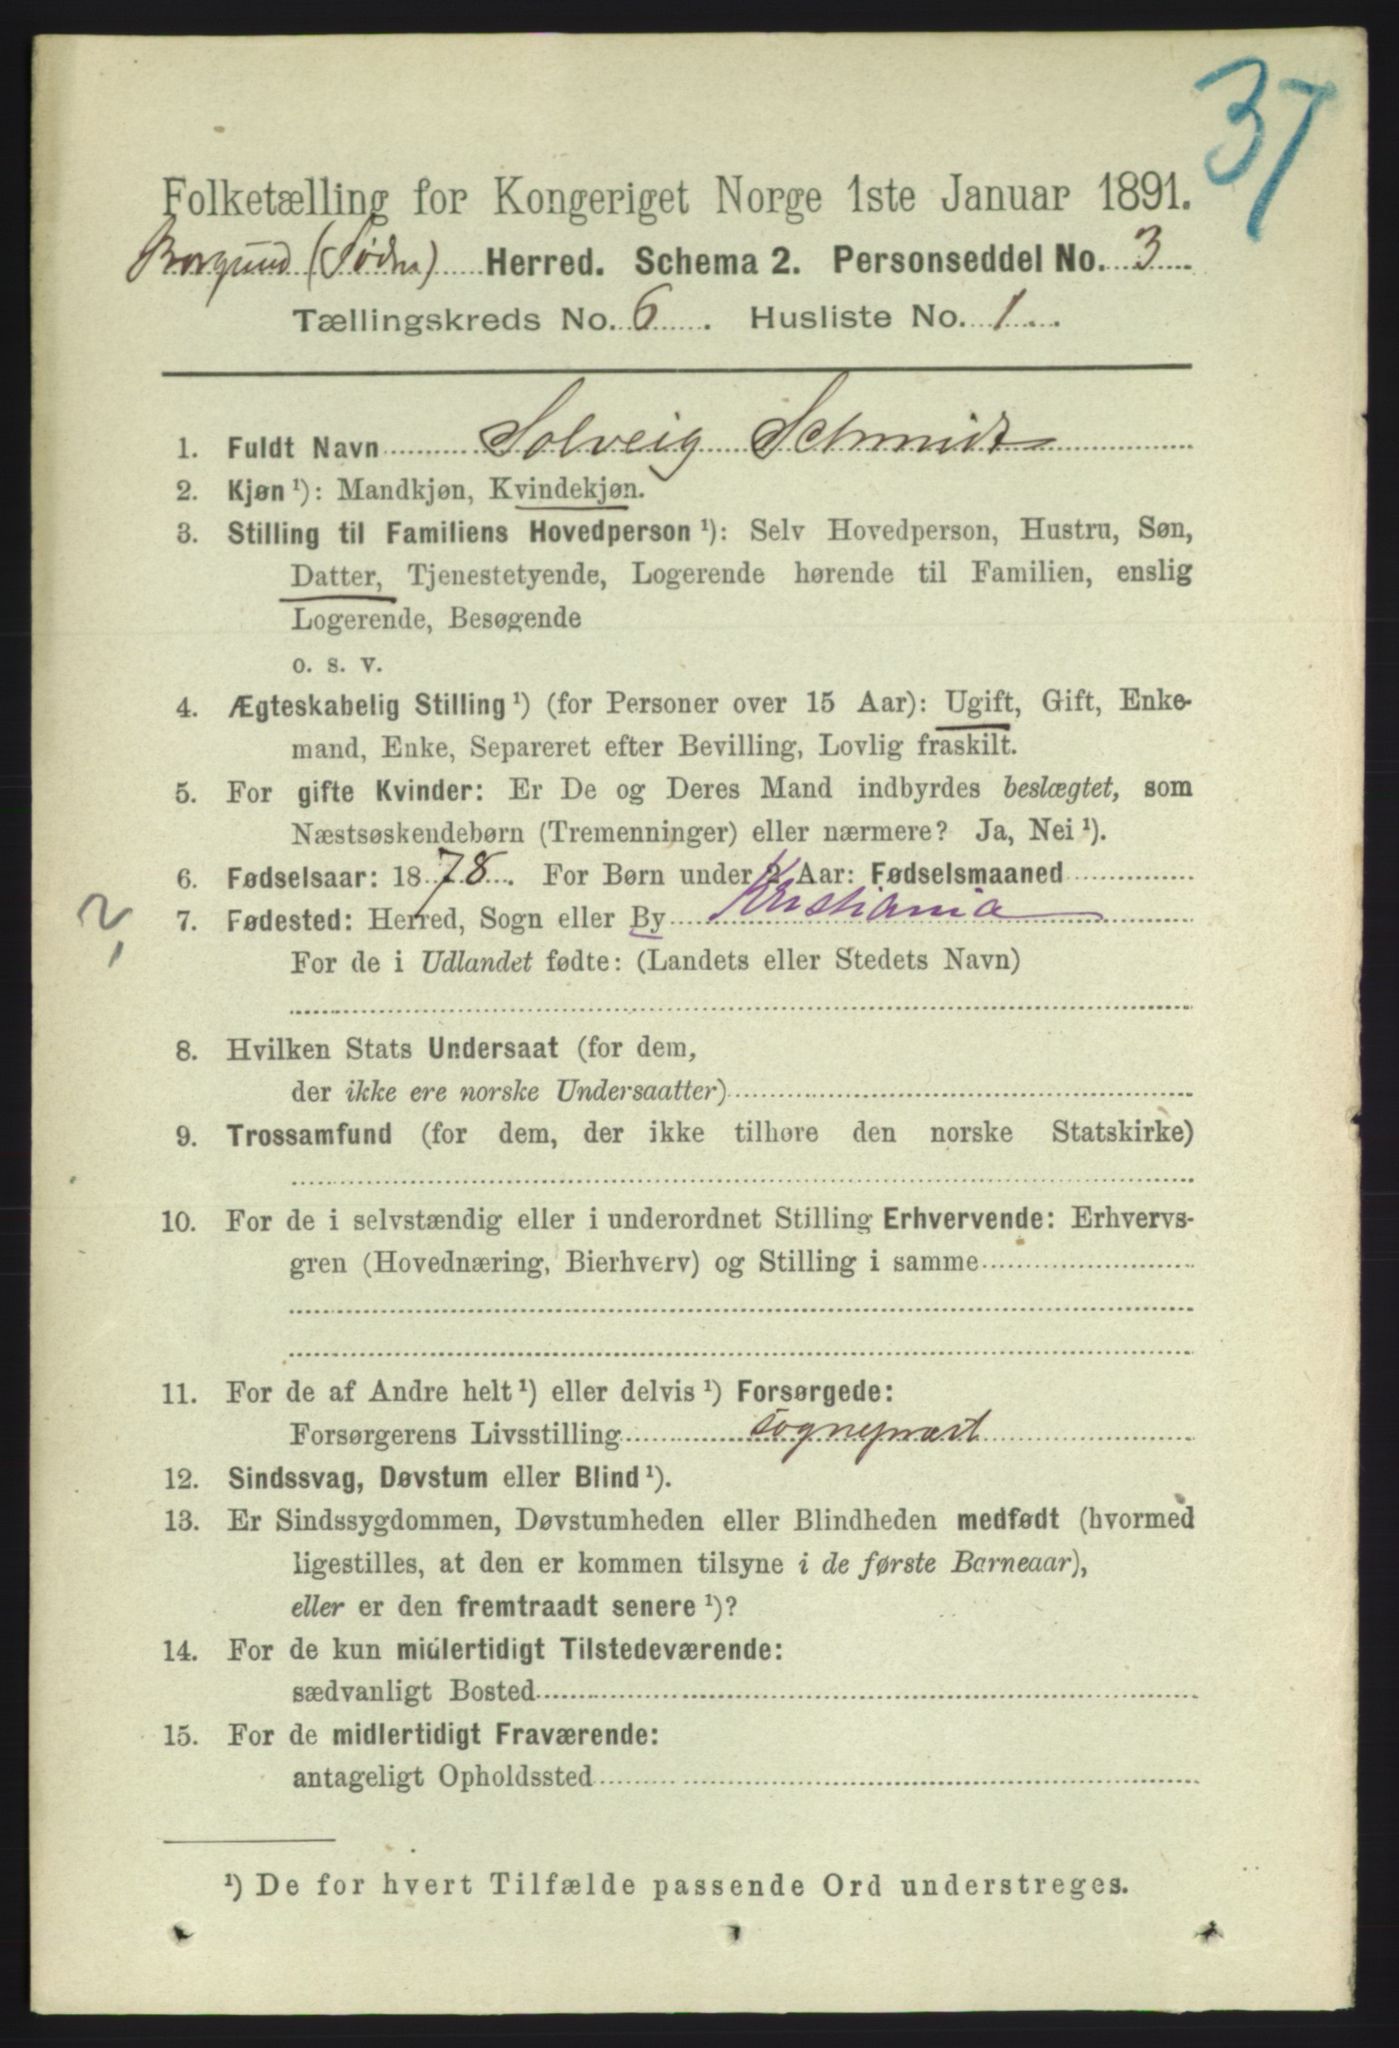 37
Folketælling for Kongeriget Norge 1ste Januar 1891.
Borgund (Søndre) Herred. Schema 2. Personseddel No. 3
Tællingskreds No. 6. Husliste No. 1.
1. Fuldt Navn Solveig Schmidt
2. Kjøn ¹): Mandkjøn, Kvindekjøn.
3. Stilling til Familiens Hovedperson ¹): Selv Hovedperson, Hustru, Søn,
Datter, Tjenestetyende, Logerende hørende til Familien, enslig
Logerende, Besøgende
o. s. v.
4. Ægteskabelig Stilling ¹) (for Personer over 15 Aar): Ugift, Gift, Enke-
mand, Enke, Separeret efter Bevilling, Lovlig fraskilt.
5. For gifte Kvinder: Er De og Deres Mand indbyrdes beslægtet, som
Næstsøskendebørn (Tremenninger) eller nærmere? Ja, Nei ¹).
6. Fødselsaar: 1878. For Børn under 2 Aar: Fødselsmaaned
7. Fødested: Herred, Sogn eller By Kristiania
For de i Udlandet fødte: (Landets eller Stedets Navn)
8. Hvilken Stats Undersaat (for dem,
der ikke ere norske Undersaatter)
9. Trossamfund (for dem, der ikke tilhøre den norske Statskirke)
10. For de i selvstændig eller i underordnet Stilling Erhvervende: Erhvervs-
gren (Hovednæring, Bierhverv) og Stilling i samme
11. For de af Andre helt ¹) eller delvis ¹) Forsørgede:
Forsørgerens Livsstilling sognepræst
12. Sindssvag, Døvstum eller Blind ¹).
13. Er Sindssygdommen, Døvstumheden eller Blindheden medfødt (hvormed
ligestilles, at den er kommen tilsyne i de første Barneaar),
eller er den fremtraadt senere ¹)?
14. For de kun midlertidigt Tilstedeværende:
sædvanligt Bosted
15. For de midlertidigt Fraværende:
antageligt Opholdssted
¹) De for hvert Tilfælde passende Ord understreges.